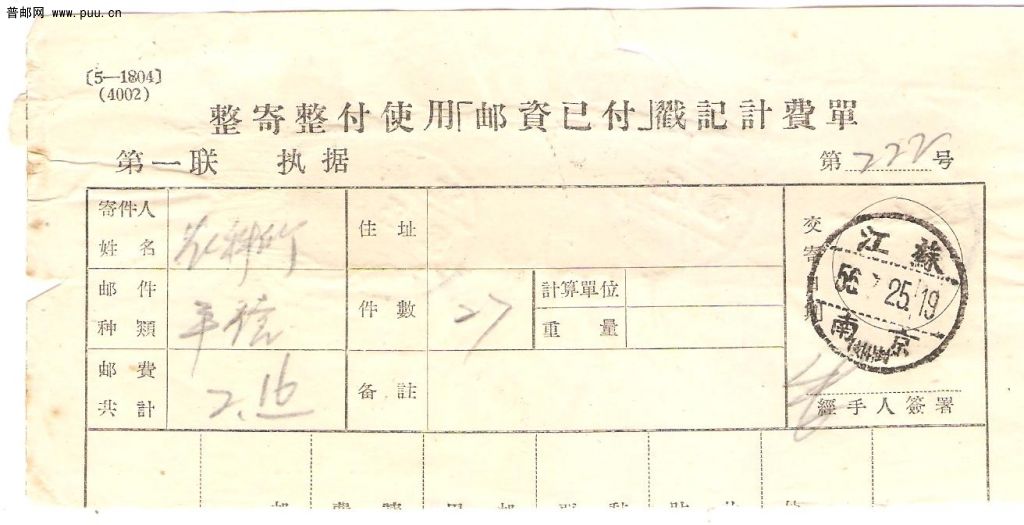 普邮网 www.puu.cn
〔5—1804〕
(4002)
整寄整付使用「邮資已付」戳記計費單
第一联 执据 第222号
寄件人
姓名 农科所
住址
交寄日期
江蘇
56 25.19
南京
邮件
种類 平信
件數 27
計算單位
重量
邮費
共計 2.16
备註
經手人簽署